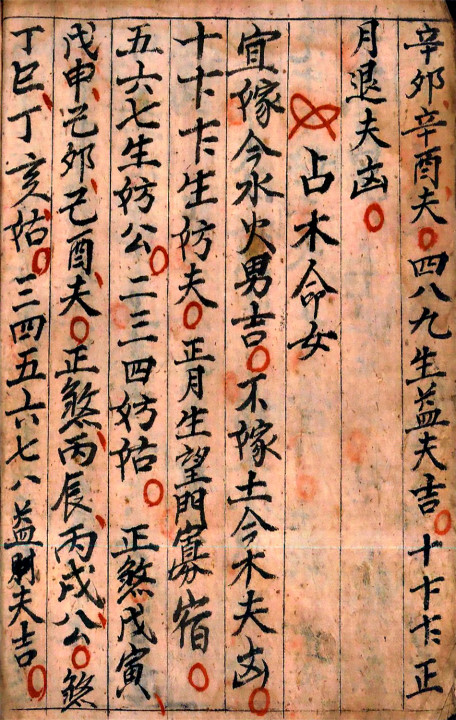 辛夘辛酉夫○四八九生益夫吉○十卞卡正
月退夫凶○
占木命女
宜嫁今水火男吉○不嫁土今木夫凶○
十卞卡生妨夫○正月生望門寡宿○
五六七生妨公○二三四妨姑○正煞戊寅
戊申己夘己酉夫○正煞丙辰丙戌公○煞
丁巳丁亥姑○三四五六七八益財夫吉○